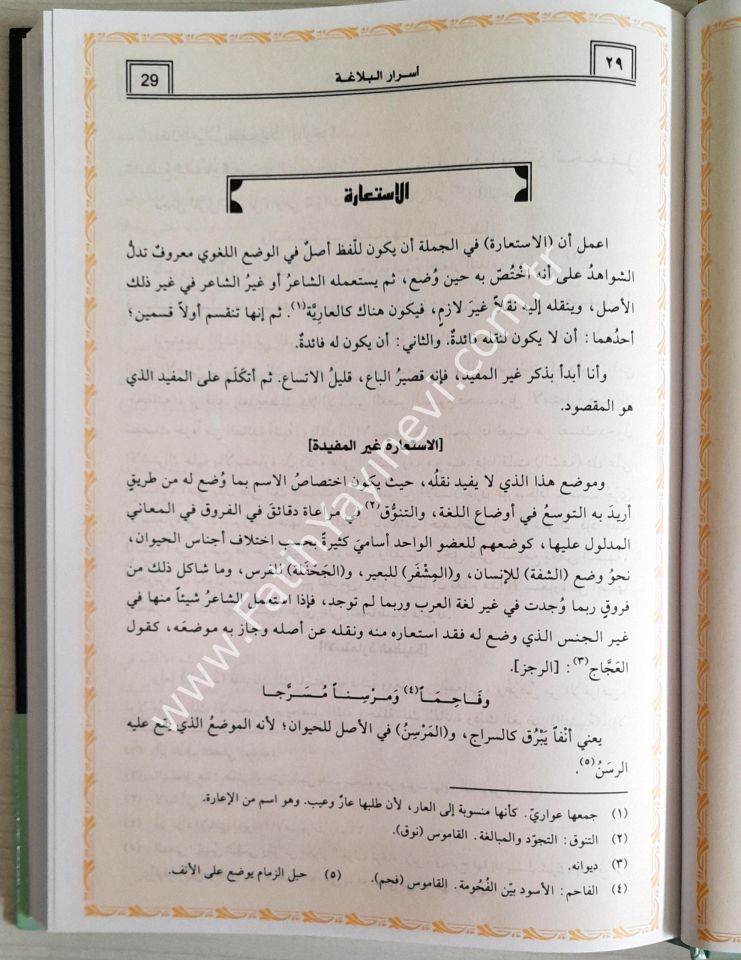 ٢٩
أسرار البلاغة
29
الاستعارة
اعمل أن (الاستعارة) في الجملة أن يكون للّفظ أصلٌ في الوضع اللغوي معروفٌ تدلُّ
الشواهدُ على أنه اخْتُصّ به حين وُضع، ثم يستعمله الشاعرُ أو غيرُ الشاعر في غير ذلك
الأصل، وينقله إليه نقْلاً غيرَ لازمٍ، فيكون هناك كالعارِيَّة(١). ثم إنها تنقسم أولاً قسمين؛
أحدُهما: أن لا يكون لنقله فائدةٌ. والثاني: أن يكون له فائدةٌ.
وأنا أبدأ بذكر غير المفيد، فإنه قصيرُ الباع، قليلُ الاتساع. ثم أتكلّم على المفيد الذي
هو المقصود.
[الاستعارة غير المفيدة]
وموضع هذا الذي لا يفيد نقلُه، حيث يكون اختصاصُ الاسم بما وُضع له من طريقٍ
أريدَ به التوسعُ في أوضاع اللغة، والتنوُّق(٢) في مراعاة دقائقَ في الفروق في المعاني
المدلول عليها، كوضعهم للعضو الواحد أساميَ كثيرةً بحسب اختلاف أجناس الحيوان،
نحوُ وضع (الشفة) للإنسان، و(المِشْفَر) للبعير، و(الجَحْفَلة) للفرس، وما شاكل ذلك من
فروقٍ ربما وُجدت في غير لغة العرب وربما لم توجد، فإذا استعمل الشاعرُ شيئاً منها في
غير الجنس الذي وضع له فقد استعاره منه ونقله عن أصله وجاز به موضعَه، كقول
العَجَّاج(٣): [الرجز].
وفَاحِمـاً(٤) وَمَرْسِنـاً مُسَرَّجـا
يعني أنْفاً يَبْرُق كالسراج، و(المَرْسِنُ) في الأصل للحيوان؛ لأنه الموضعُ الذي يَقع عليه
الرسَنُ(٥).
(١) جمعها عواريّ. كأنها منسوبة إلى العار، لأن طلبها عارٌ وعيب. وهو اسم من الإعارة.
(٢) التنوق: التجوّد والمبالغة. القاموس (نوق).
(٣) ديوانه.
(٤) الفاحم: الأسود بيّن الفُحُومة. القاموس (فحم). (٥) حبل الزمام يوضع على الأنف.
www.FatihYayinevi.com.tr